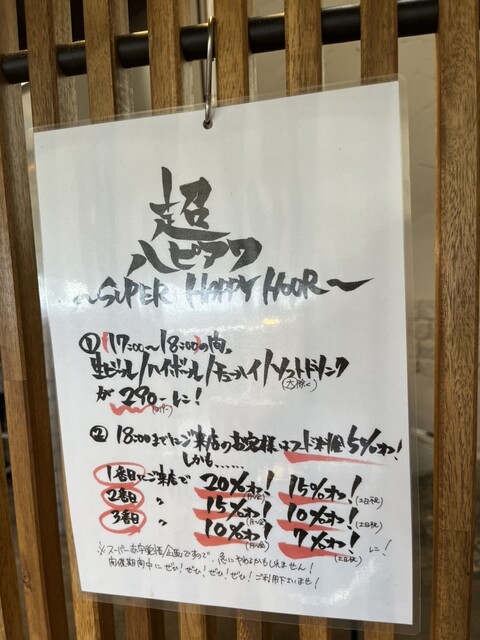 超
ハピアワ
～SUPER HAPPY HOUR～
① 17:00～18:00の間、
生ビール/ハイボール/チューハイ/ソフトドリンク
(大除く)
が290-に!
② 18:00までにご来店のお客様はフード料金5%オフ!
しかも......
1番目にご来店で 20%オフ!(月～金) 15%オフ!(土日祝)
2番目 〃 15%オフ!(月～金) 10%オフ!(土日祝)
3番目 〃 10%オフ!(月～金) 7%オフ!(土日祝)に!
※スーパー赤字覚悟企画ですので、急にやめるかもしれません!
開催期間中にぜひ!ぜひ!ぜひ!ぜひ!ご利用下さいませ!